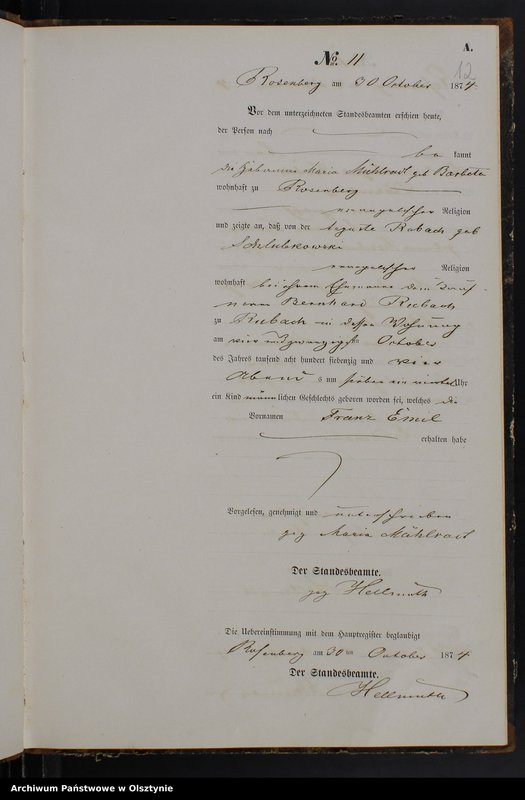 A.
No. 11
12
Rosenberg am 30 October 1874
Vor dem unterzeichneten Standesbeamten erschien heute,
der Person nach
be kannt
die Hebamme Maria Mühlradt geb
wohnhaft zu Rosenberg
evangelischer Religion
und zeigte an, daß von der Auguste Rubach geb
evangelischer Religion
wohnhaft bei ihrem Ehemanne dem
Bernhard Rubach
zu in dessen Wohnung
am vier und zwanzigsten October
des Jahres tausend acht hundert siebenzig und vier
Abend s um sieben ein viertel Uhr
ein Kind männlichen Geschlechts geboren worden sei, welches die
Vornamen Franz Emil
erhalten habe
Vorgelesen, genehmigt und unterschrieben
gez Maria Mühlradt
Der Standesbeamte.
gez Hellmuth
Die Uebereinstimmung mit dem Hauptregister beglaubigt
Rosenberg am 30ten October 1874
Der Standesbeamte.
Hellmuth
Archiwum Państwowe w Olsztynie